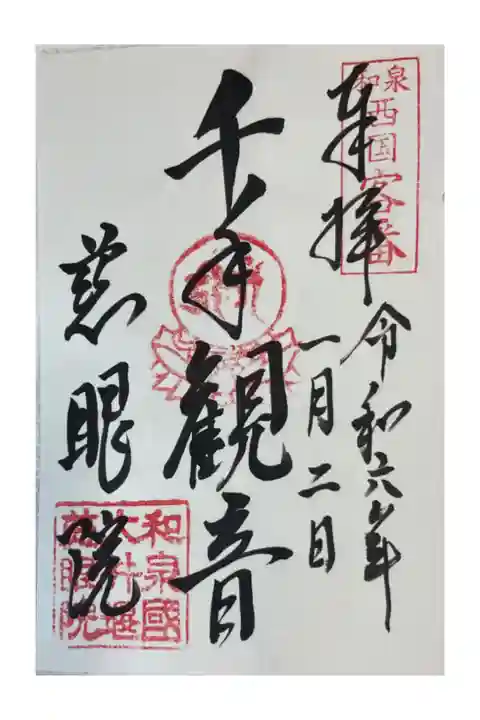 和泉
西国客番
奉拝
令和六年
一月二日
千手観音
慈眼院
和泉國
大井堰
慈眼院